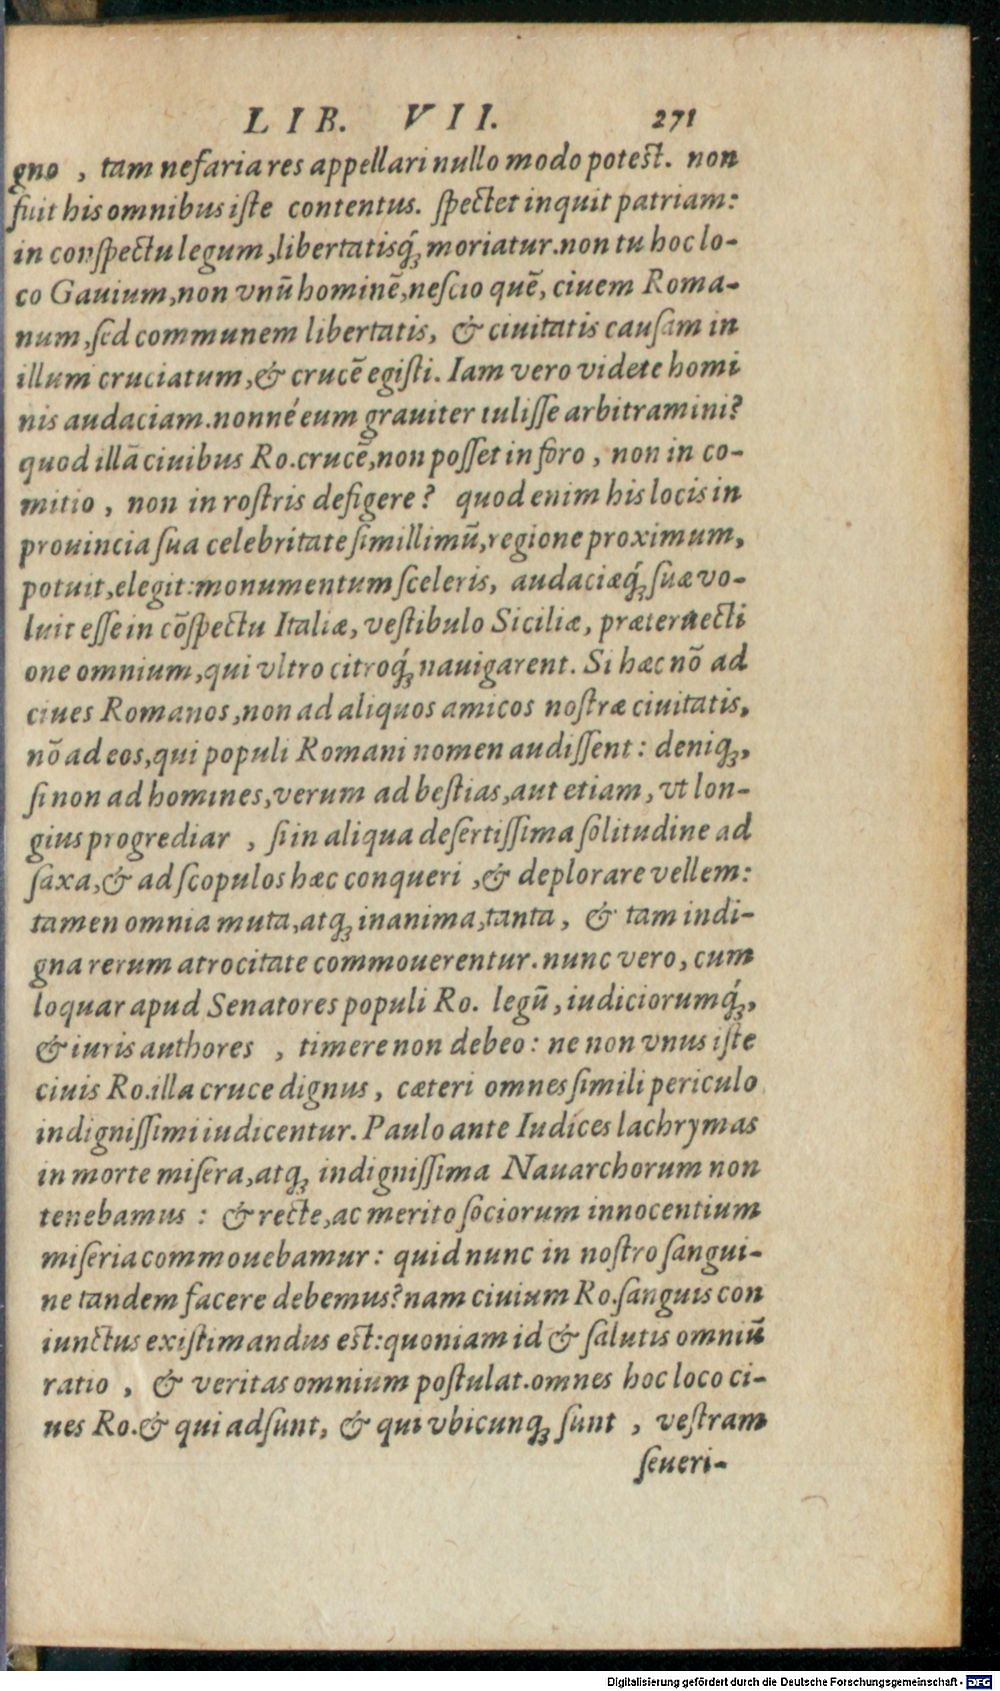 LIB. VII. 271
gno , tam nefaria res appellari nullo modo potest. non
fuit his omnibus iste contentus. spectet inquit patriam:
in conspectu legum,libertatisq́; moriatur.non tu hoc lo-
co Gauium,non vnū hominē,nescio quē, ciuem Roma-
num,sed communem libertatis, & ciuitatis causam in
illum cruciatum,& crucē egisti. Iam vero videte homi
nis audaciam.nonné eum grauiter tulisse arbitramini?
quod illā ciuibus Ro.crucē,non posset in foro , non in co-
mitio , non in rostris defigere? quod enim his locis in
prouincia sua celebritate simillimū,regione proximum,
potuit,elegit:monumentum sceleris, audaciæq́; suæ vo-
luit esse in cōspectu Italiæ, vestibulo Siciliæ, præteruecti
one omnium,qui vltro citroq́; nauigarent. Si hæc nō ad
ciues Romanos,non ad aliquos amicos nostræ ciuitatis,
nō ad eos,qui populi Romani nomen audissent: deniq;,
si non ad homines,verum ad bestias,aut etiam, vt lon-
gius progrediar , si in aliqua desertissima solitudine ad
saxa,& ad scopulos hæc conqueri ,& deplorare vellem:
tamen omnia muta,atq; inanima,tanta, & tam indi-
gna rerum atrocitate commouerentur.nunc vero, cum
loquar apud Senatores populi Ro. legū, iudiciorumq́;,
& iuris authores , timere non debeo: ne non vnus iste
ciuis Ro.illa cruce dignus, cæteri omnes simili periculo
indignissimi iudicentur. Paulo ante Iudices lachrymas
in morte misera,atq; indignissima Nauarchorum non
tenebamus : & recte,ac merito sociorum innocentium
miseria commouebamur: quid nunc in nostro sangui-
ne tandem facere debemus?nam ciuium Ro.sanguis con
iunctus existimandus est:quoniam id & salutis omniū
ratio , & veritas omnium postulat.omnes hoc loco ci-
ues Ro.& qui adsunt, & qui vbicunq; sunt , vestram
seueri-
Digitalisierung gefördert durch die Deutsche Forschungsgemeinschaft - DFG